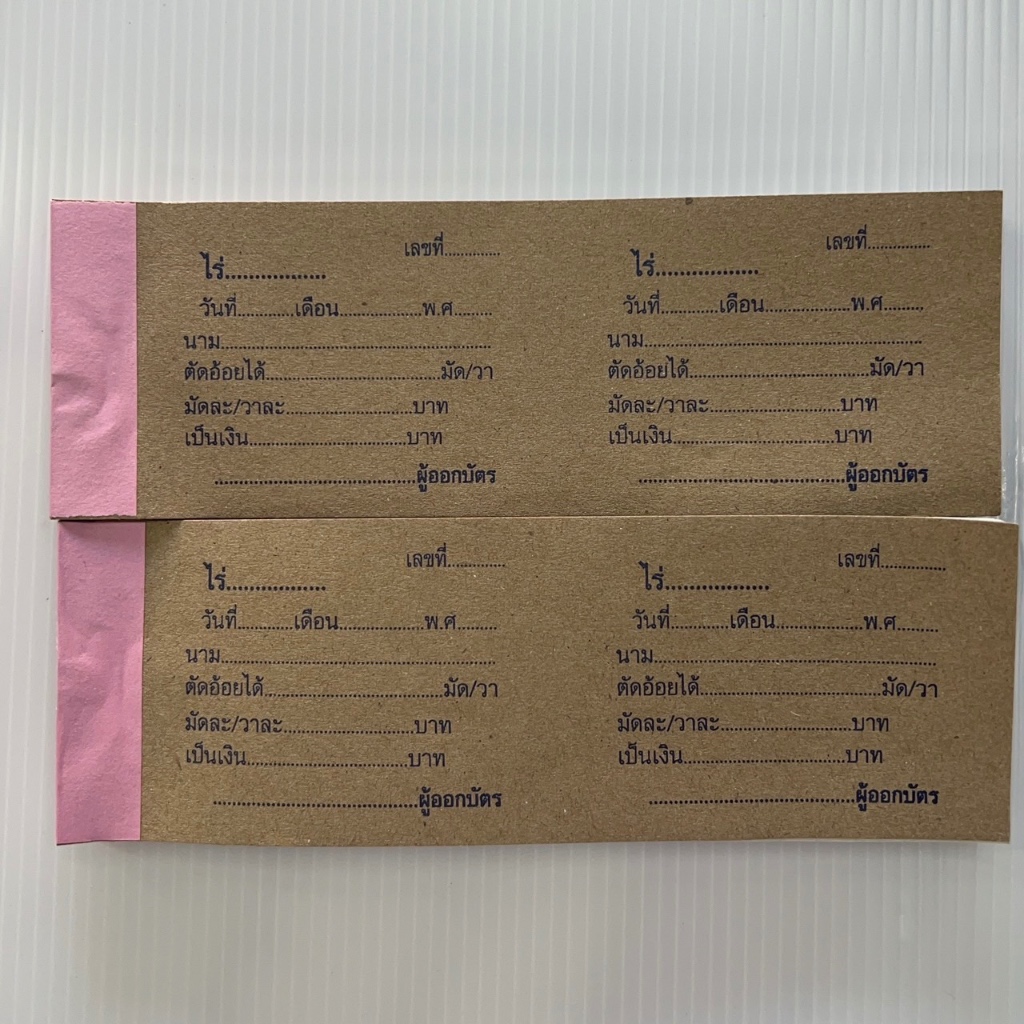 เลขที่............
ไร่.................
วันที่............เดือน.................พ.ศ........
นาม.........................................................
ตัดอ้อยได้.....................................มัด/วา
มัดละ/วาละ...........................บาท
เป็นเงิน.................................บาท
..........................................ผู้ออกบัตร
เลขที่.............
ไร่.................
วันที่............เดือน..................พ.ศ........
นาม...........................................................
ตัดอ้อยได้......................................มัด/วา
มัดละ/วาละ............................บาท
เป็นเงิน..................................บาท
..........................................ผู้ออกบัตร
เลขที่............
ไร่.................
วันที่............เดือน..................พ.ศ........
นาม..........................................................
ตัดอ้อยได้......................................มัด/วา
มัดละ/วาละ...........................บาท
เป็นเงิน..................................บาท
..........................................ผู้ออกบัตร
เลขที่.............
ไร่......................
วันที่............เดือน..................พ.ศ........
นาม............................................................
ตัดอ้อยได้......................................มัด/วา
มัดละ/วาละ...........................บาท
เป็นเงิน..................................บาท
..........................................ผู้ออกบัตร